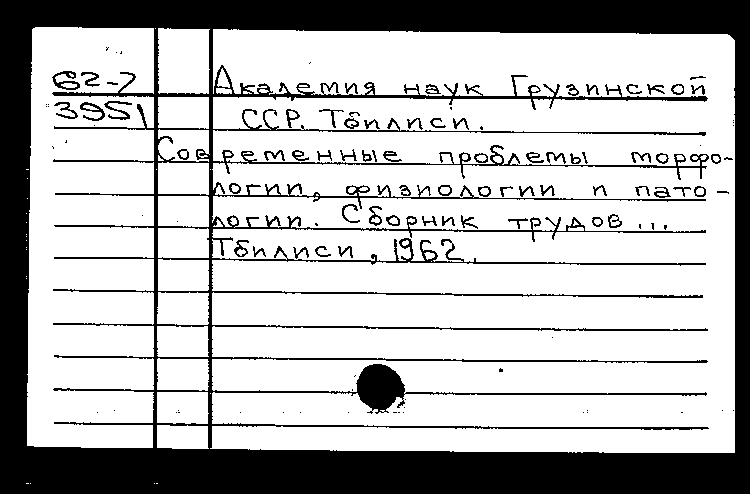 62-7
3951
Академия наук Грузинской
ССР. Тбилиси.
Современные проблемы морфо-
логии, физиологии и пато-
логии. Сборник трудов ...
Тбилиси, 1962.